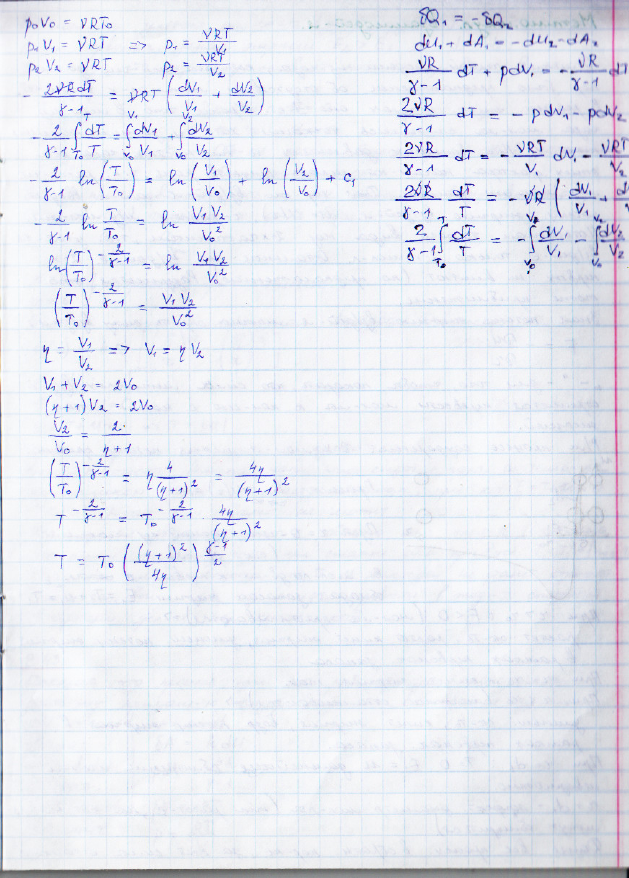 p₀V₀ = νRT₀
p₁V₁ = νRT => p₁ = νRT/V₁
p₂V₂ = νRT p₂ = νRT/V₂
- 2νRdT/(γ-1) = νRT (dV₁/V₁ + dV₂/V₂)
- 2/(γ-1) ∫_{T₀}^{T} dT/T = ∫_{V₀}^{V₁} dV₁/V₁ + ∫_{V₀}^{V₂} dV₂/V₂
- 2/(γ-1) ln(T/T₀) = ln(V₁/V₀) + ln(V₂/V₀) + C₁
- 2/(γ-1) ln T/T₀ = ln V₁V₂/V₀²
ln(T/T₀)^{-2/(γ-1)} = ln V₁V₂/V₀²
(T/T₀)^{-2/(γ-1)} = V₁V₂/V₀²
η = V₁/V₂ => V₁ = ηV₂
V₁ + V₂ = 2V₀
(η+1)V₂ = 2V₀
V₂/V₀ = 2/(η+1)
(T/T₀)^{-2/(γ-1)} = η 4/(η+1)² = 4η/(η+1)²
T^{-2/(γ-1)} = T₀^{-2/(γ-1)} · 4η/(η+1)²
T = T₀ ((η+1)²/4η)^{(γ-1)/2}
δQ₁ = -δQ₂
dU₁ + dA₁ = -dU₂ - dA₂
νR/(γ-1) dT + pdV₁ = - νR/(γ-1) dT
2νR/(γ-1) dT = - pdV₁ - pdV₂
2νR/(γ-1) dT = - νRT/V₁ dV₁ - νRT/V₂
2νR/(γ-1) dT/T = - νR (dV₁/V₁ +
2/(γ-1) ∫_{T₀}^{T} dT/T = - ∫_{V₀}^{V₁} dV₁/V₁ - ∫_{V₀} dV₂/V₂